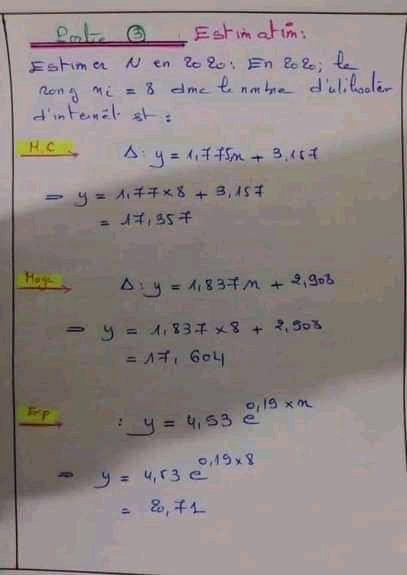 Partie ③ : Estimation:
Estimer N en 2020: En 2020; le
rang xi = 8 donc le nombre d'utilisateur
d'internet est :
M.C. Δ: y = 1,775x + 3,157
⇒ y = 1,77×8 + 3,157
= 17,357
Moye Δ: y = 1,837x + 2,903
⇒ y = 1,837 × 8 + 2,903
= 17,604
Exp : y = 4,53 e^0,19×x
⇒ y = 4,53 e^0,19×8
= 20,71